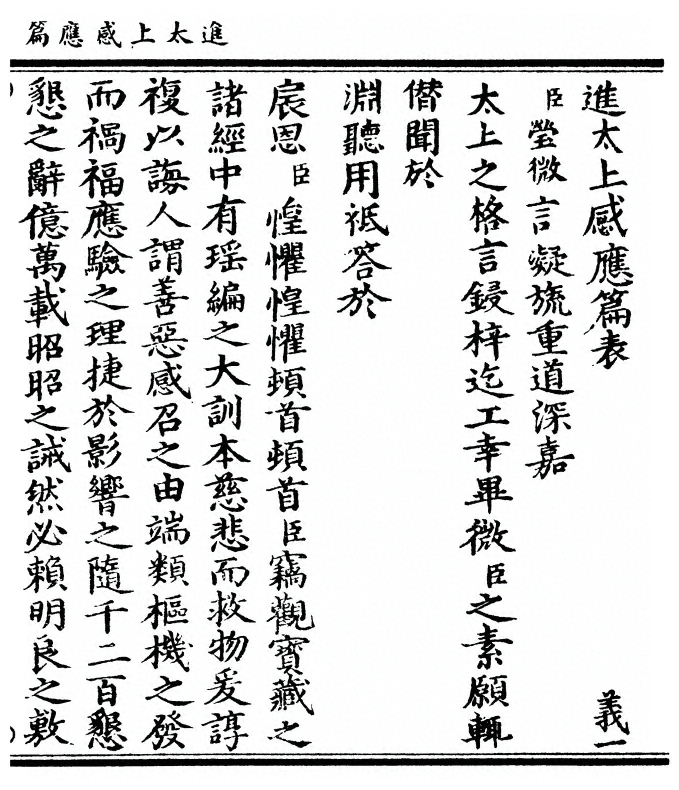 進太上感應篇
進太上感應篇表　義一
臣瑩微言凝旒重道深嘉
太上之格言鋟梓迄工幸畢微臣之素願輒
僣聞於
淵聽用祇答於
扆恩臣惶懼惶懼頓首頓首臣竊觀寶藏之
諸經中有瑶編之大訓本慈悲而救物爰諄
複以誨人謂善惡感召之由端類樞機之發
而禍福應驗之理捷於影響之隨千二百懇
懇之辭億萬載昭昭之誡然必賴明良之敷